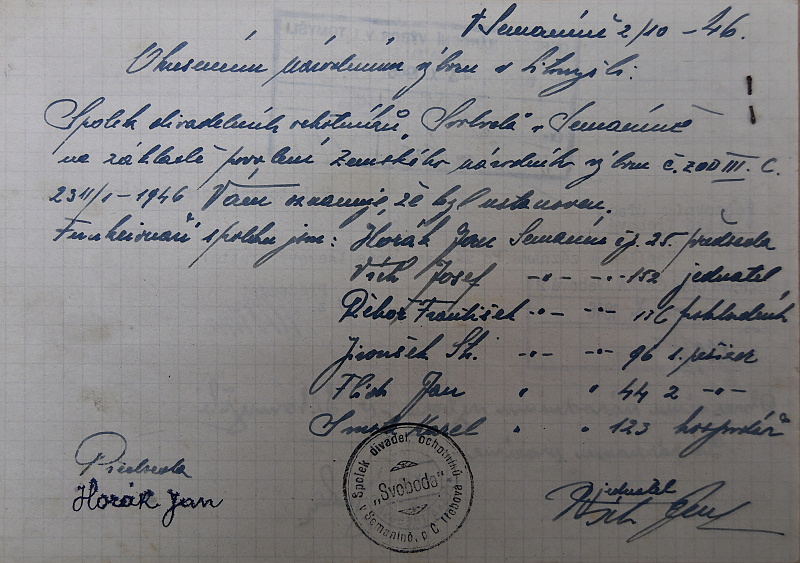 V Semaníně 2/10 - 46.
Okresnímu národnímu výboru v Litomyšli:
Spolek divadelních ochotníků „Svoboda" v Semaníně
na základě povolení Zemského národního výboru č. 200 III. C.
2311/1 - 1946 Vám oznamuje, že byl ustanoven.
Funkcionáři spolku jsou: Horák Jan Semanín čp. 25. předseda
Vích Josef -"- -"- 152 jednatel
František -"- -"- 176 pokladník
Jiroušek St. -"- -"- 96 1.
Flídr Jan " " 44 2 -"-
Karel " " 123 hospodář
Předseda
Horák Jan
jednatel
Vích
Spolek divadel. ochotníků
„Svoboda"
v Semaníně, p. Č. Třebová